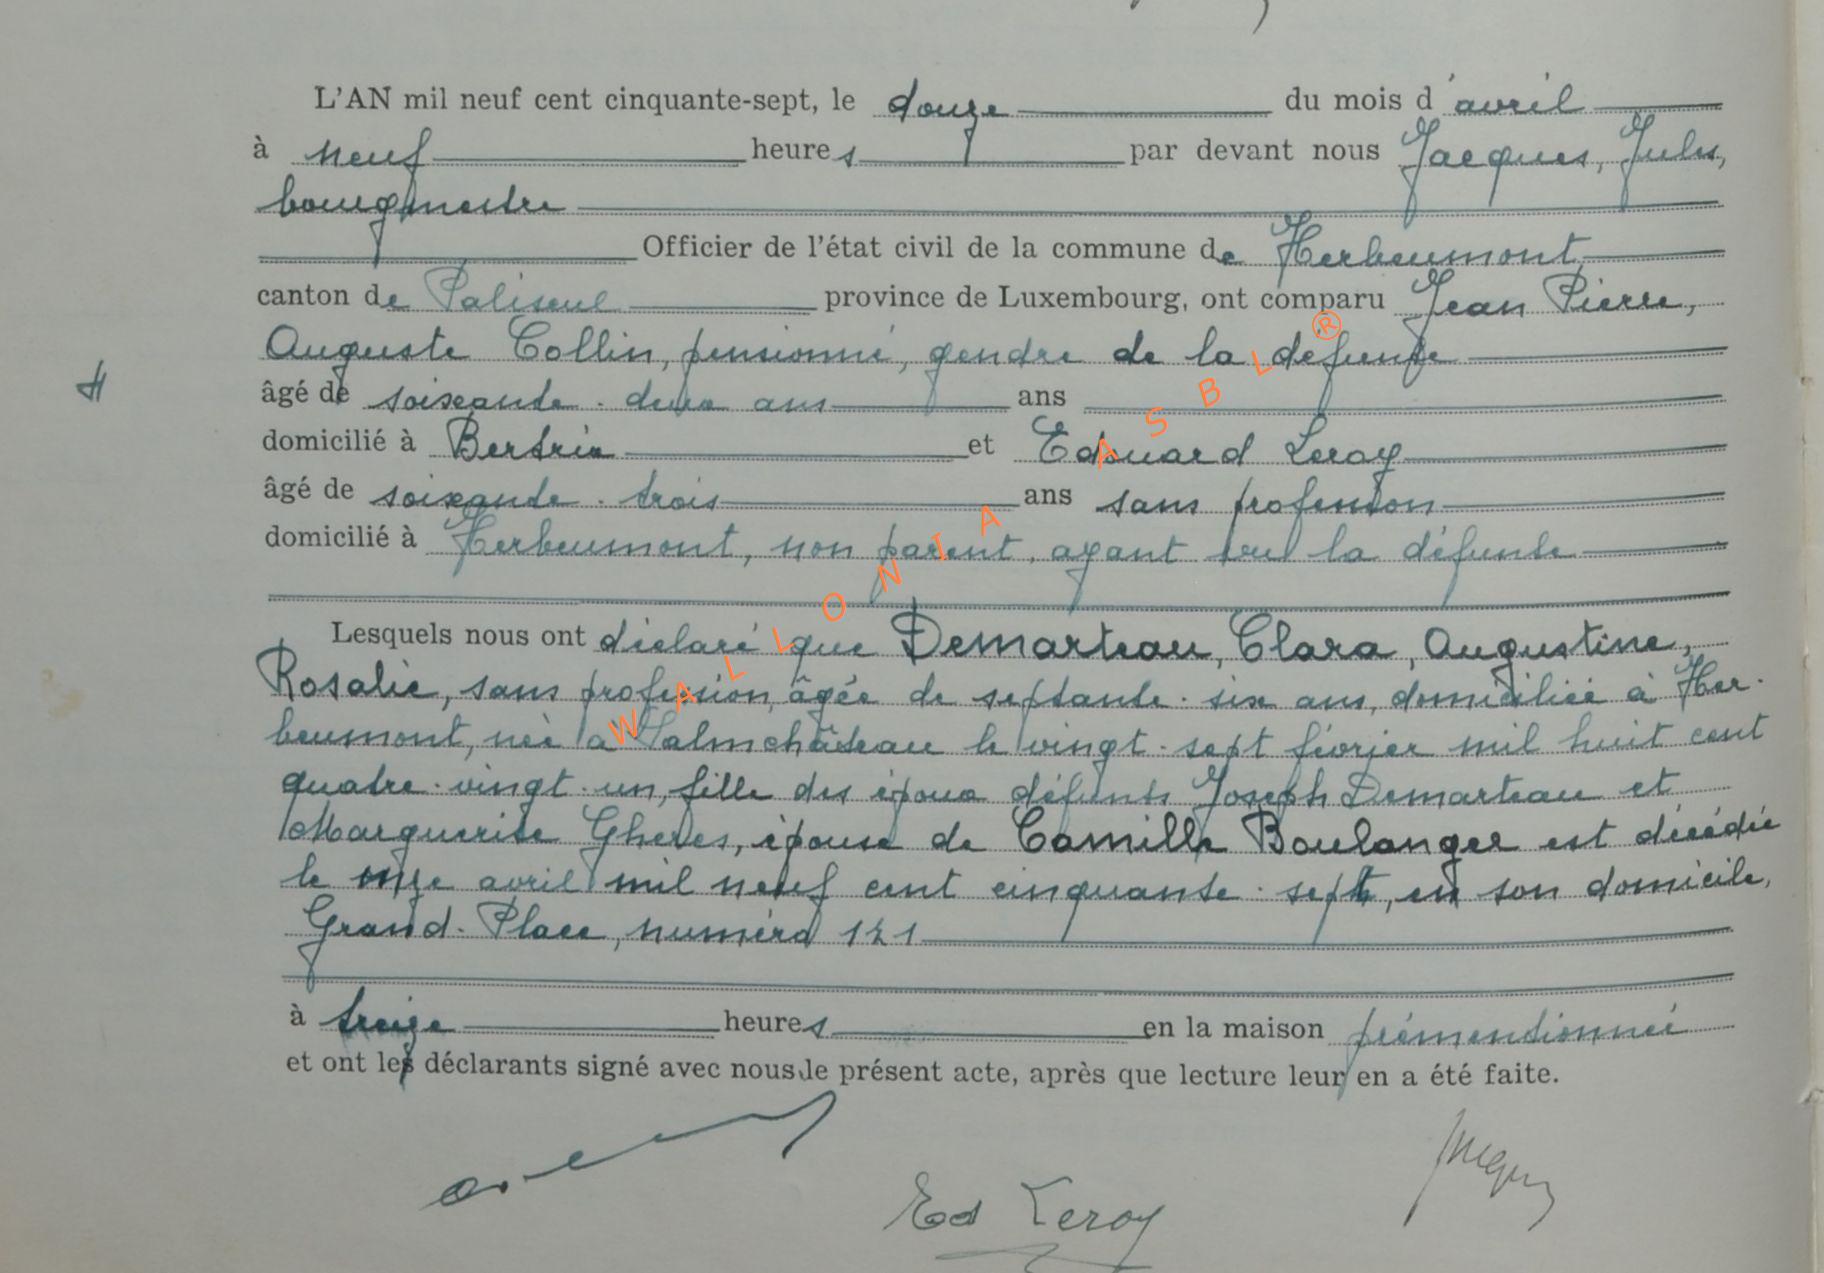 L'AN mil neuf cent cinquante-sept, le douze du mois d'avril
à neuf heures par devant nous Jacques, Jules,
bourgmestre
Officier de l'état civil de la commune de Herbeumont
canton de Paliseul province de Luxembourg, ont comparu Jean Pierre,
Auguste Collin, pensionné, gendre de la défunte
âgé de soixante-deux ans ans
domicilié à Bertrix et Edouard Leroy
âgé de soixante-trois ans sans profession
domicilié à Herbeumont, non parent, ayant vu la défunte
Lesquels nous ont déclaré que Demarteau, Clara, Augustine,
Rosalie, sans profession, âgée de septante-six ans, domiciliée à Her-
beumont, née à Salmchâteau le vingt-sept février mil huit cent
quatre-vingt-un, fille des époux défunts Joseph Demarteau et
Marguerite, épouse de Camille Boulanger est décédée
le onze avril mil neuf cent cinquante-sept, en son domicile,
Grand-Place, numéro 121
à treize heures en la maison prémentionnée
et ont les déclarants signé avec nous le présent acte, après que lecture leur en a été faite.
Ed Leroy
Jacques
WALLONIA ASBL®